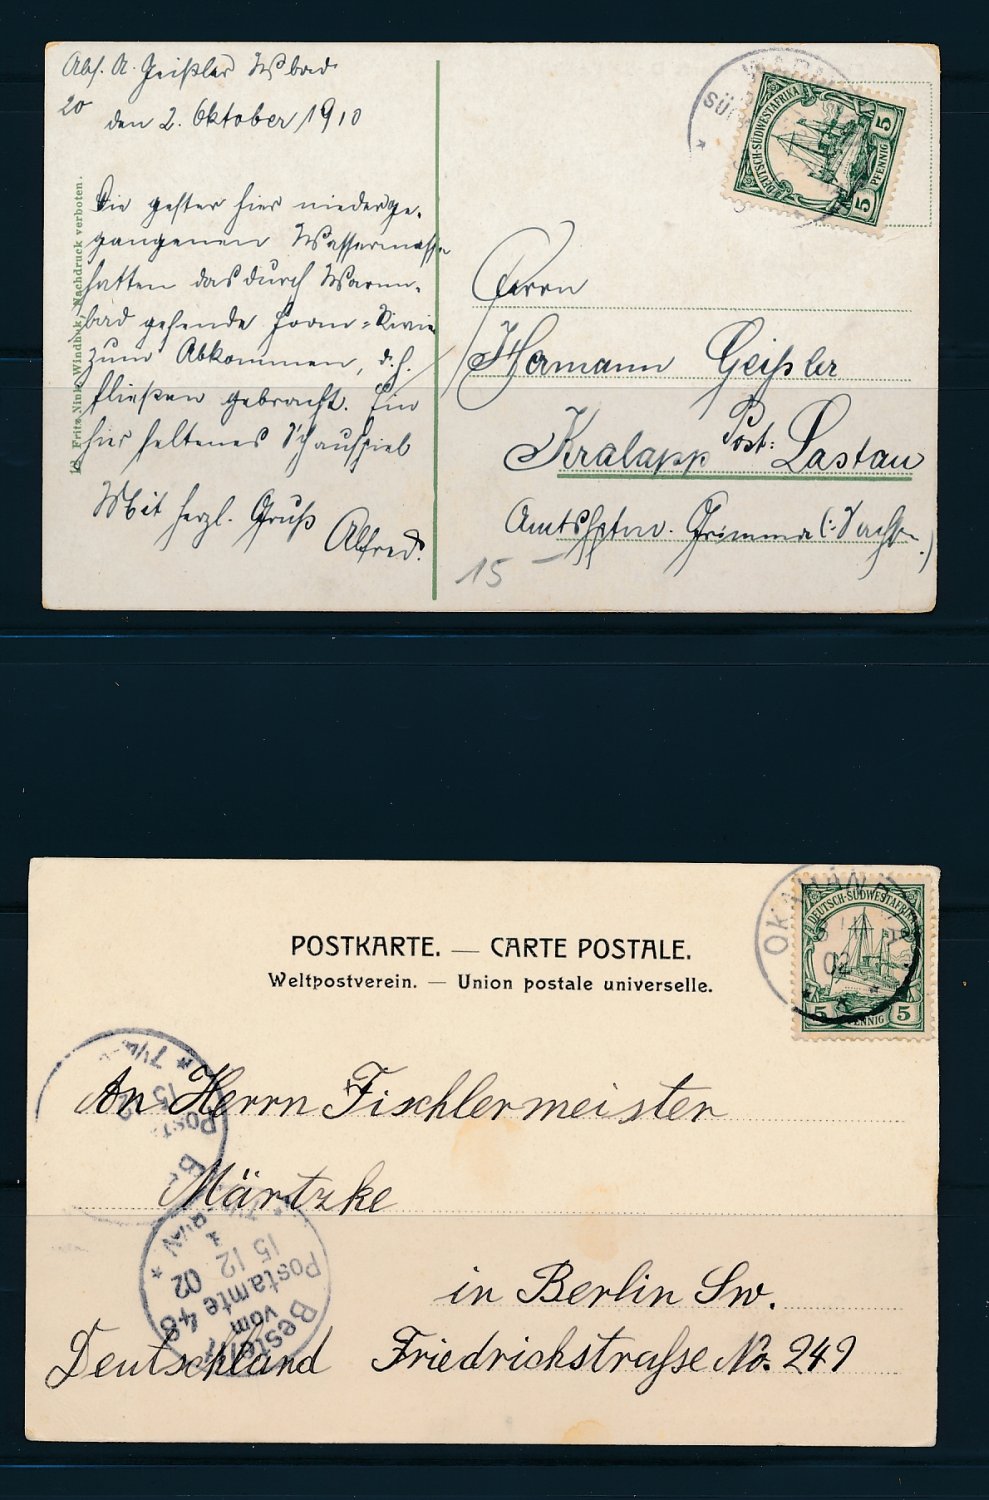 Abs. A. Geißler Wbad
20
den 2. Oktober 1910
Die gestern hier niederge-
gangenen Wassermassen
hatten das durch Warm-
bad gehende Hom-Rivier
zum Abkommen, d. h.
fließen gebracht. Ein
hier seltenes Schauspiel
Mit herzl. Gruß
Alfred.
Fritz Nink, Windhuk. Nachdruck verboten.
SÜD
DEUTSCH-SÜDWESTAFRIKA
5 PFENNIG 5
Herrn
Hermann Geißler
Kralapp Post: Lastau
Amtshptm. Grimma (:Sachsen.)
15 —
POSTKARTE. — CARTE POSTALE.
Weltpostverein. — Union postale universelle.
OKAHAND
02
DEUTSCH-SÜDWESTAFRIKA
5 PFENNIG 5
An Herrn Tischlermeister
Märtzke
in Berlin Sw.
Deutschland Friedrichstrasse No. 249
Bestellt
vom
Postamte 48
15 12
02